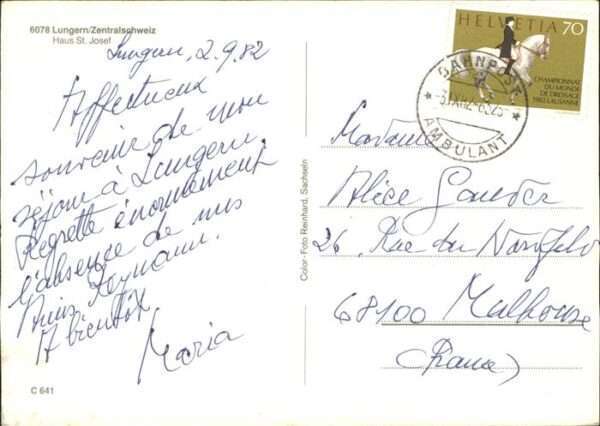 6078 Lungern/Zentralschweiz
Haus St. Josef
Lungern, 2.9.82
Affectueux
souvenir de mon
séjour à Lungern.
Regrette énormément
l'absence de mes
Amis
A bientôt
Maria
C 641
Color-Foto Reinhard, Sachseln
HELVETIA 70
CHAMPIONNAT
DU MONDE
DE DRESSAGE
1982 LAUSANNE
BAHNPOST
AMBULANT
Madame
Alice
26, Rue du
68100 Mulhouse
(France)